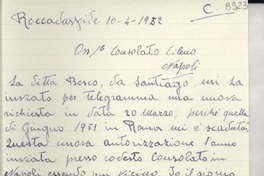 C. 8923
Roccadaspide 10-4-1952
On/le Consolato Cileno
Napoli
La ditta Bosco, da Santiago, mi ha
inviato per telegramma una nuova
richiesta in data 20 Marzo, perché quella
di Giugno 1951 in Roma mi è scaduta.
Questa nuova autorizzazione l'anno
inviata presso codesto Consolato in
Napoli essendo più vicino. Io il giorno